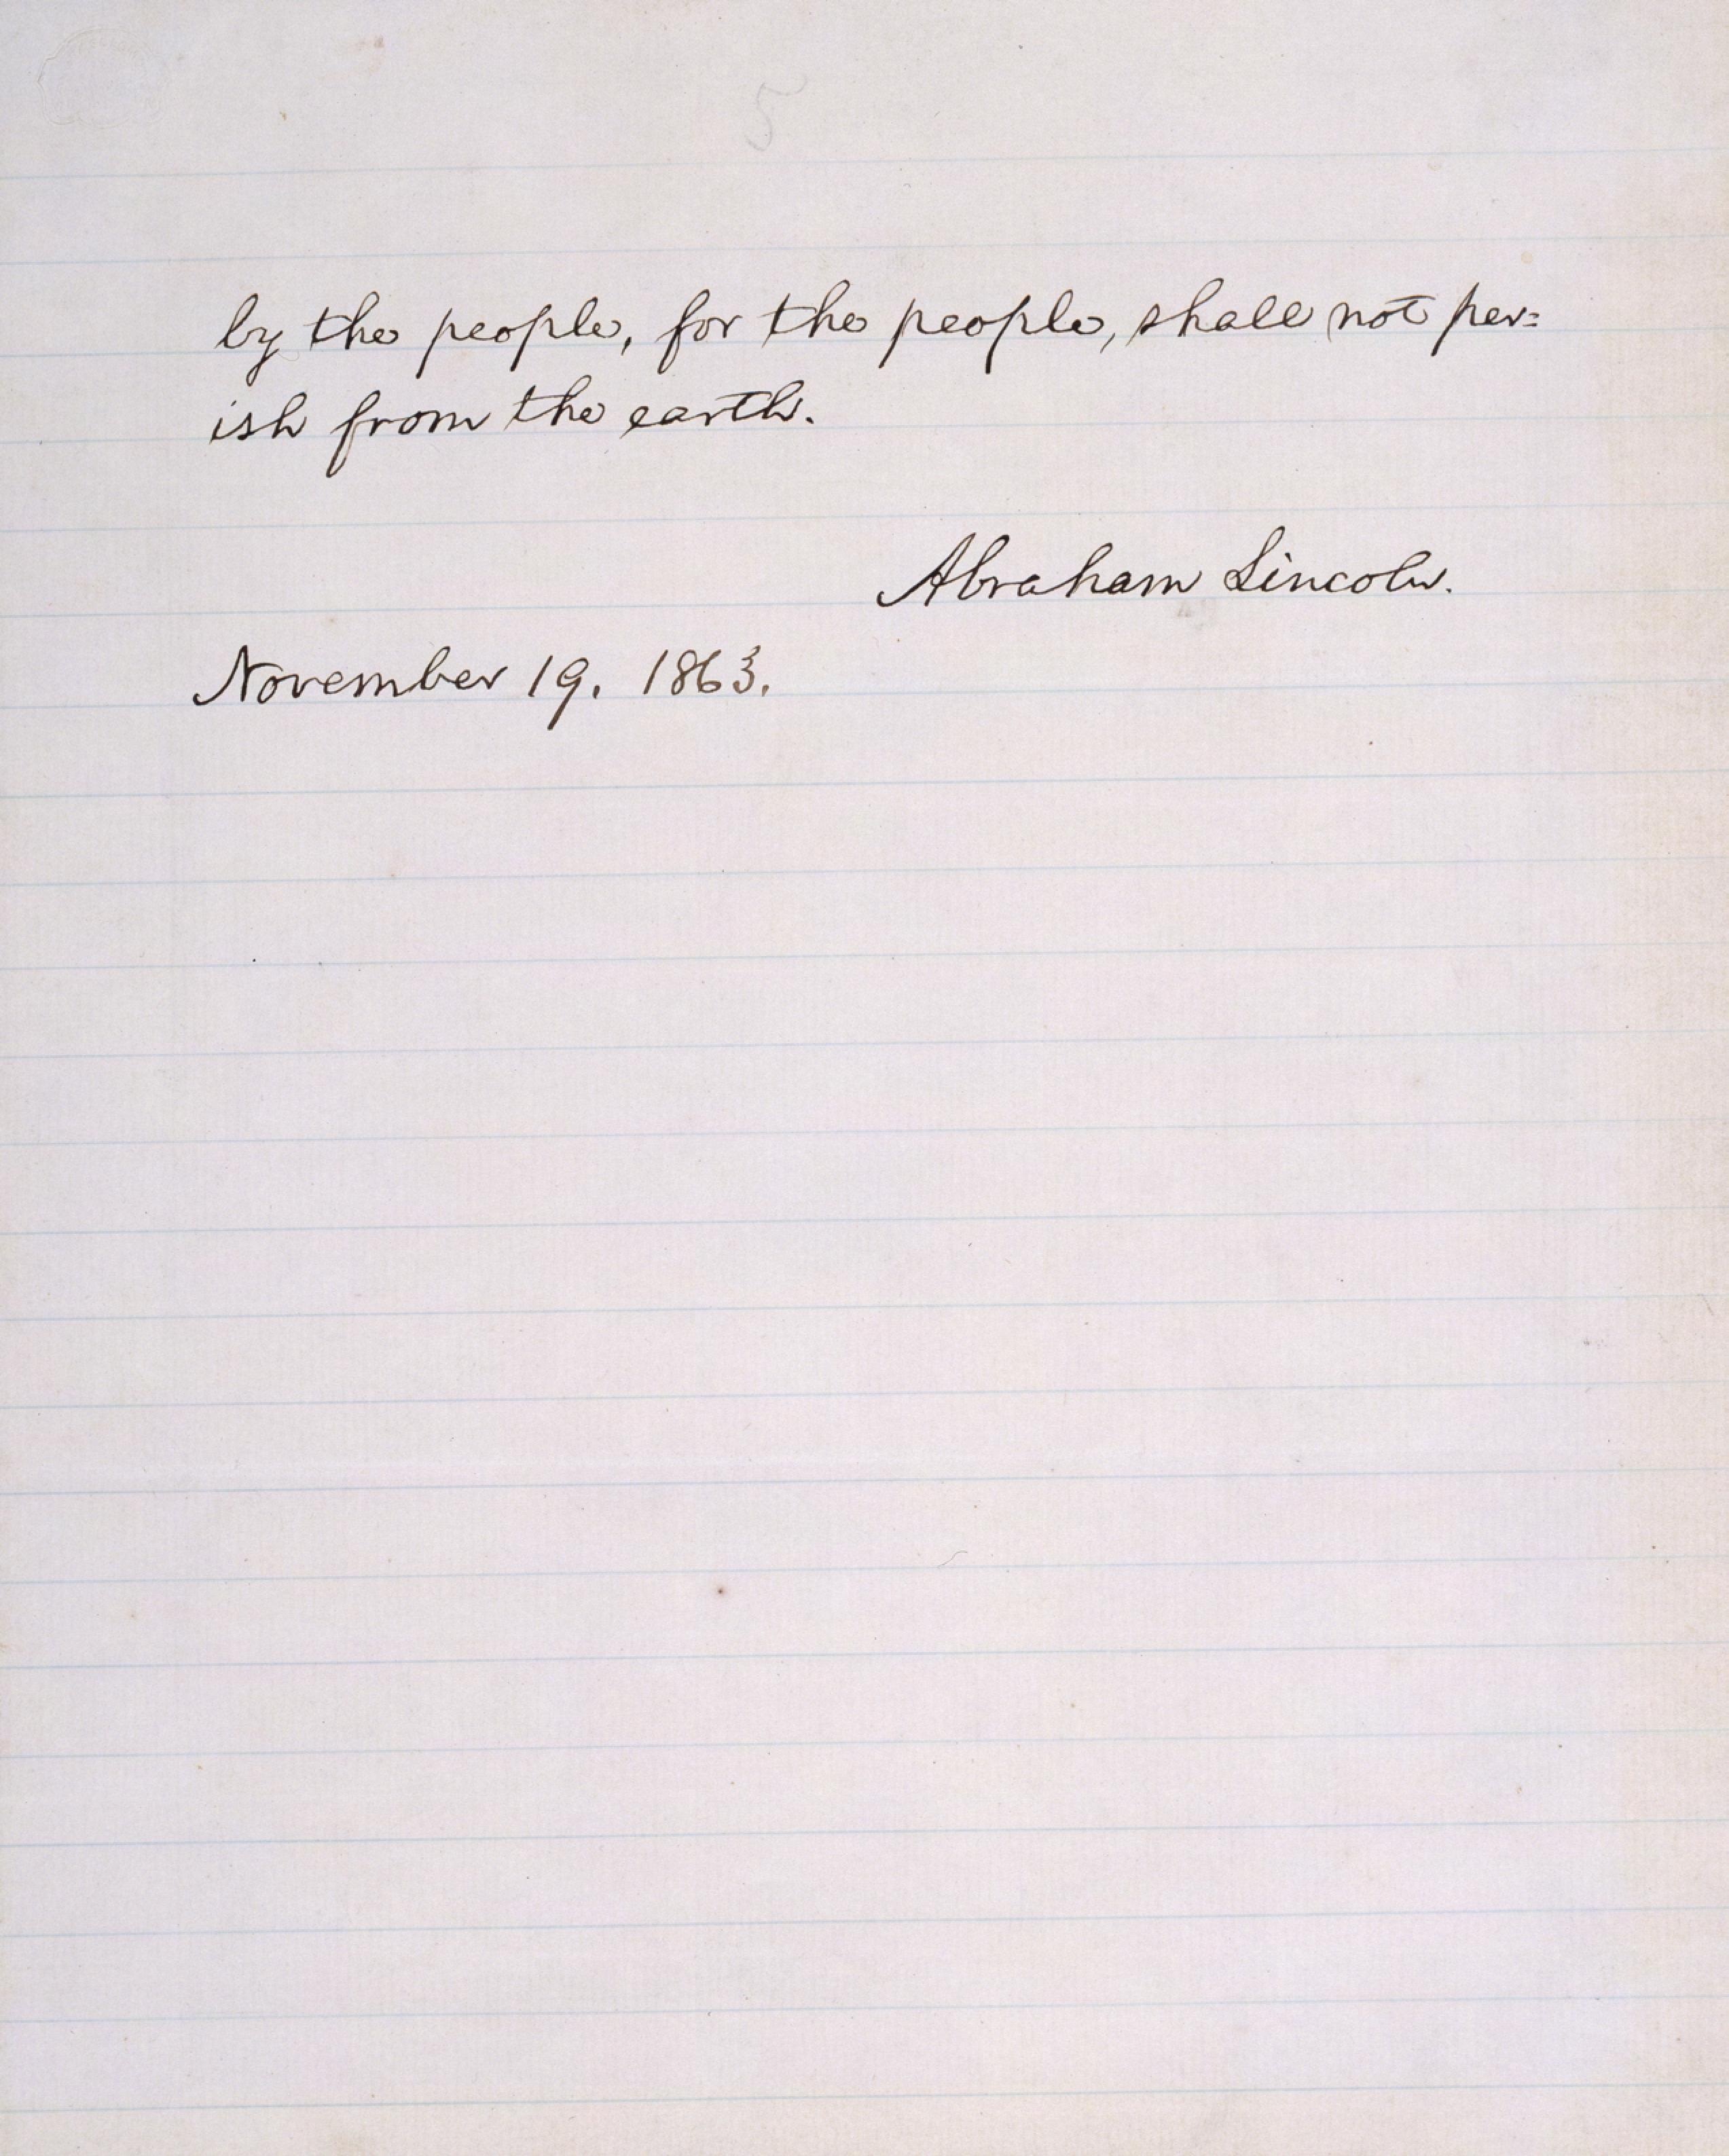 5
by the people, for the people, shall not per=
ish from the earth.
Abraham Lincoln.
November 19. 1863.